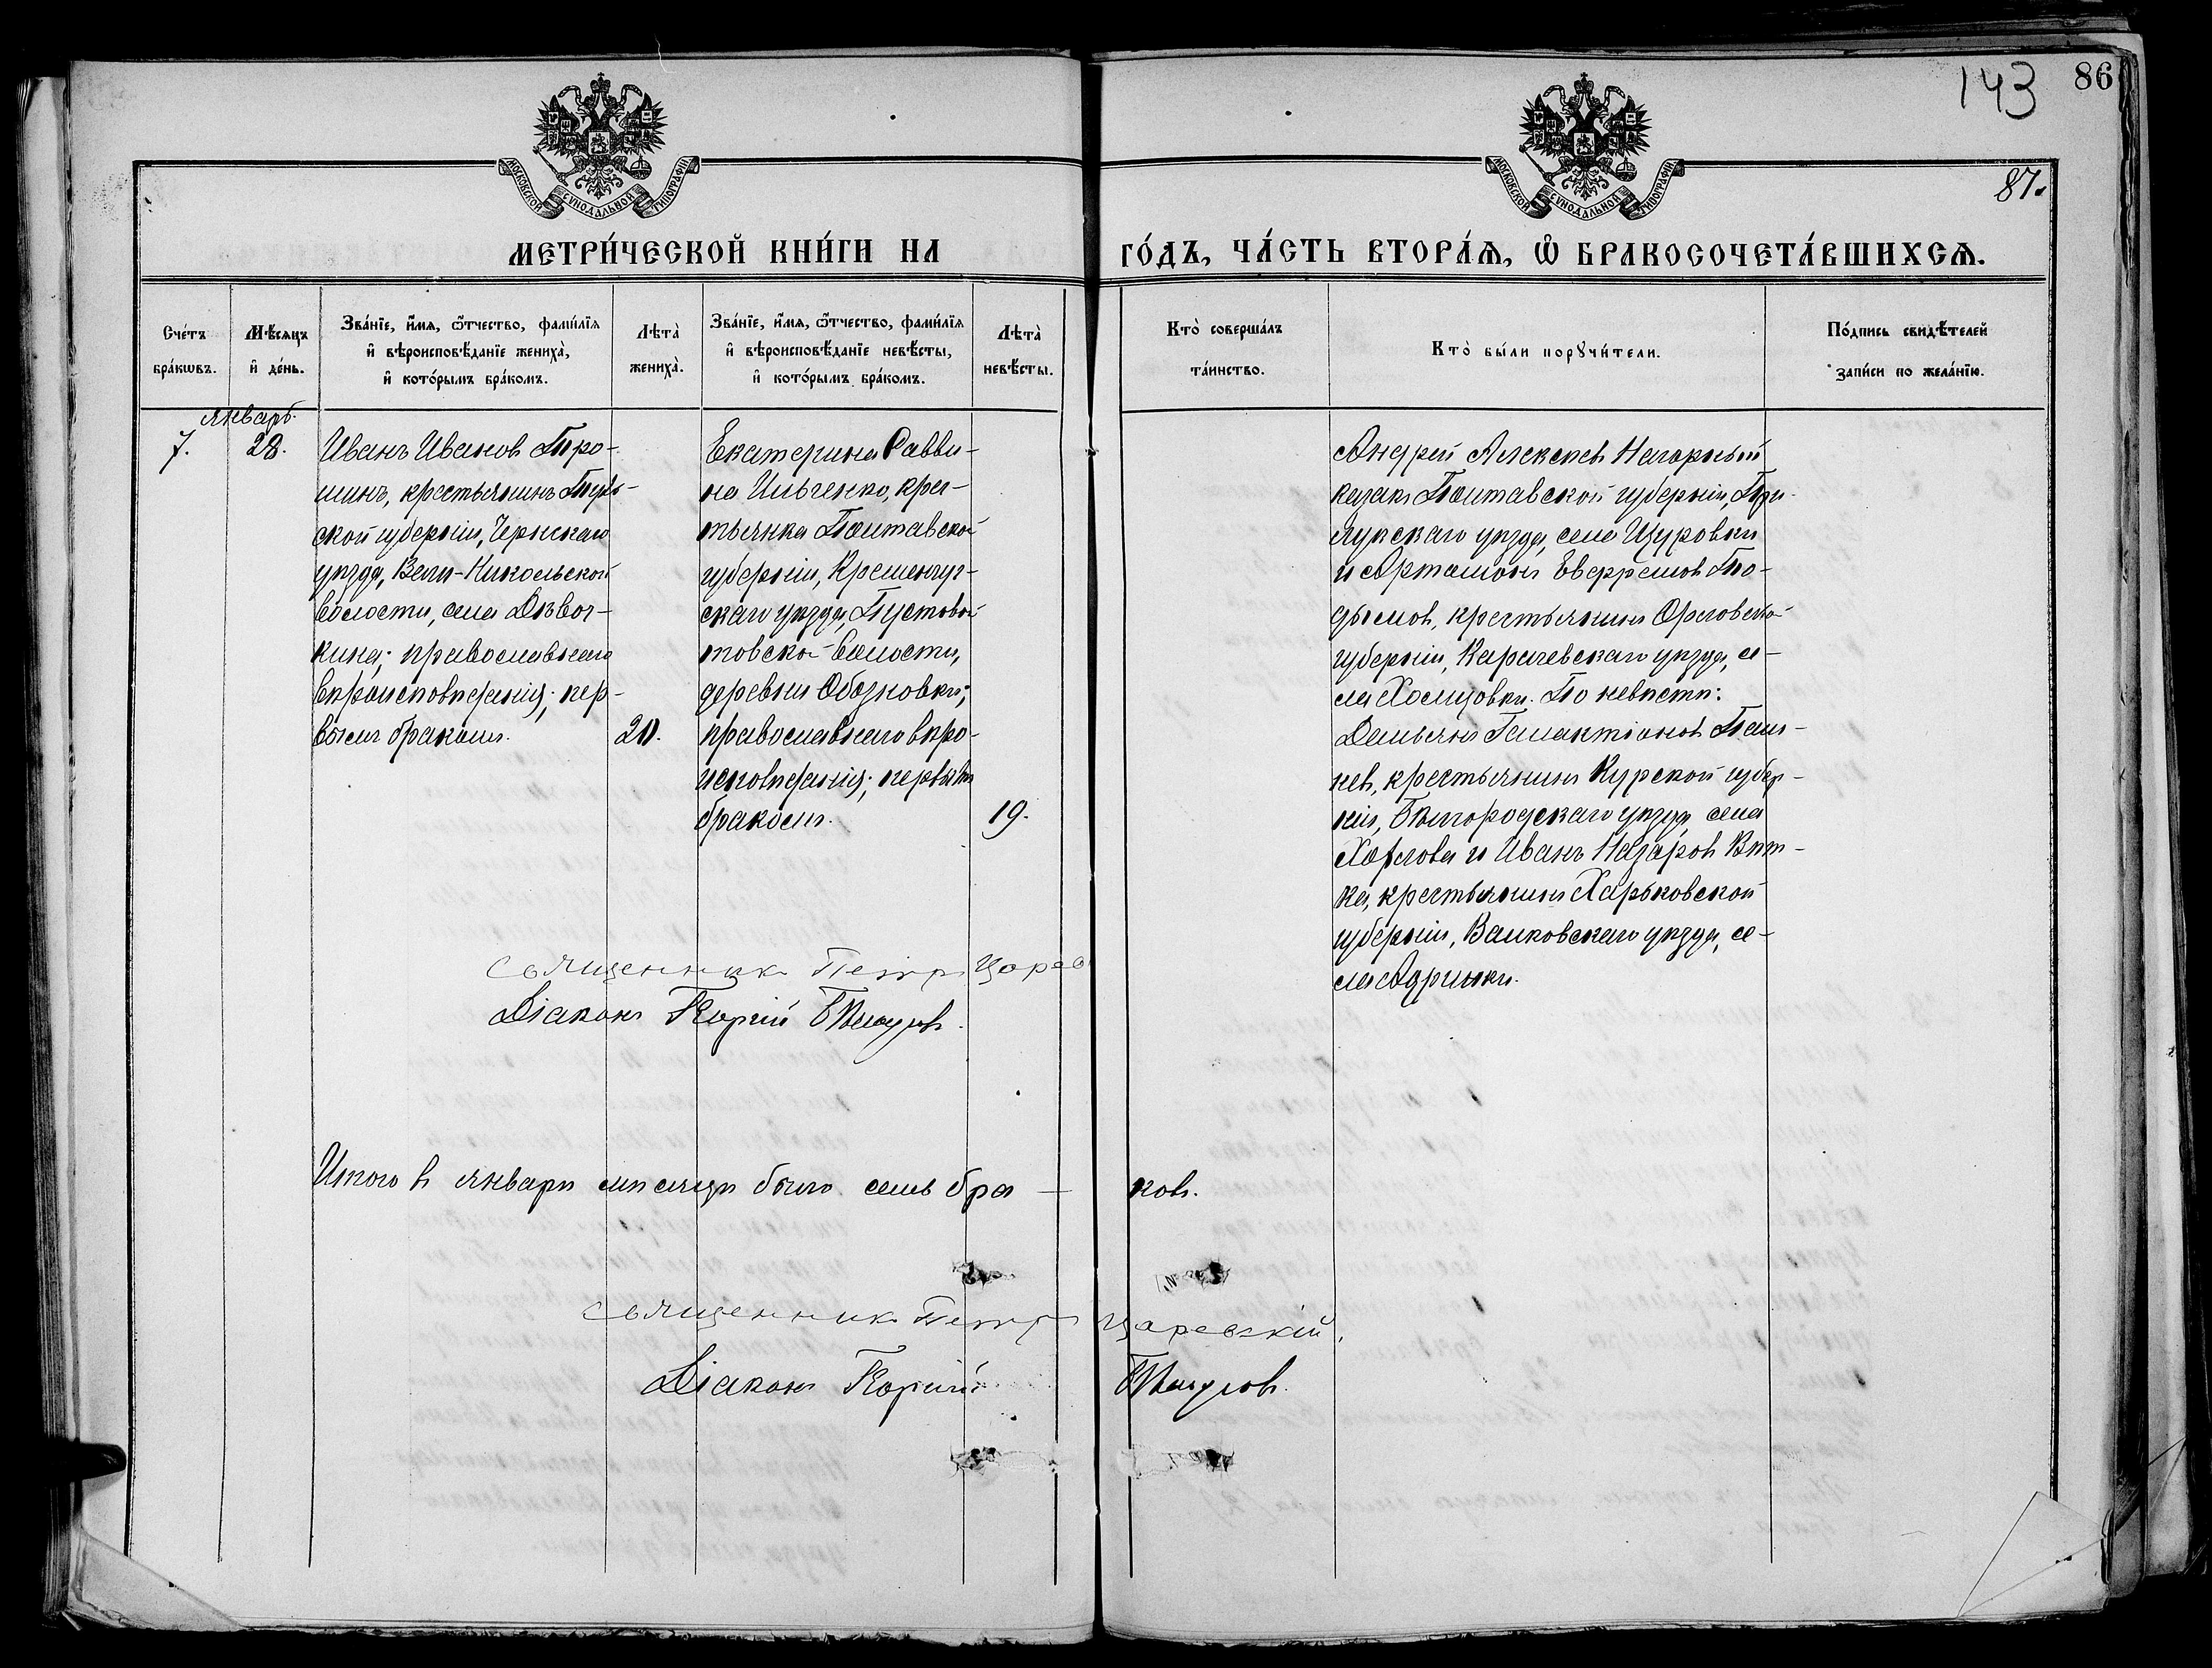 143 86
87.
МОСКОВСКОЙ СѴНОДАЛЬНОЙ ТИПОГРАФІИ
МОСКОВСКОЙ СѴНОДАЛЬНОЙ ТИПОГРАФІИ
МЕТРИ́ЧЕСКОЙ КНИ́ГИ НА
ГО́ДЪ, ЧА́СТЬ ВТОРА́Ѧ, Ѿ БРАКОСОЧЕТА́ВШИХСѦ.
Сче́тъ
бра́кѡвъ.
Мѣ́сяцъ
и҆ де́нь.
Зва́нїе, и҆́мѧ, ѻ҆́тчество, фами́лїѧ
и҆ вѣроисповѣ́данїе жениха̀,
и҆ кото́рымъ бра́комъ.
Лѣта̀
жениха̀.
Зва́нїе, и҆́мѧ, ѻ҆́тчество, фами́лїѧ
и҆ вѣроисповѣ́данїе невѣ́сты,
и҆ кото́рымъ бра́комъ.
Лѣта̀
невѣ́сты.
Кто̀ соверша́лъ
та́инство.
Кто̀ бы́ли порꙋчи́тели.
По́дпись свидѣ́телей
за́писи по жела́нїю.
январь.
7.
28.
Иванъ Ивановъ Тро-
шинъ, крестьянинъ Туль-
ской губерніи, Чернскаго
уѣзда,
Никольской
волости, села
кина; православнаго
вѣроисповѣданія; пер-
вымъ бракомъ.
20.
Екатерина Савви-
на Ильченко, крес-
тьянка Полтавской
губерніи, Кременчуг-
скаго уѣзда, Пустовой-
товской волости,
деревни Обозновки;
православнаго вѣро-
исповѣданія; первымъ
бракомъ.
19.
Андрей Алексѣевъ Нагорный
казакъ Полтавской губерніи, При-
лукскаго уѣзда, села Щуровки
и Артамонъ Евфремовъ По-
дымов, крестьянинъ Орловской
губерніи, Карачевскаго уѣзда, се-
ла Холщовки. По невѣстѣ:
Демьянъ Галактіоновъ Пан-
невъ, крестьянинъ Курской губер-
ніи, Бѣлгородскаго уѣзда села
Хохлова и Иванъ Назаровъ Вит-
ка, крестьянинъ Харьковской
губерніи, Валковскаго уѣзда, се-
ла Одринки.
Священникъ Петръ Царев
Діаконъ Георгій
Итого въ январѣ мѣсяцѣ было семь бра-
ковъ.
Священникъ Петръ Царевскій.
Діаконъ Георгій